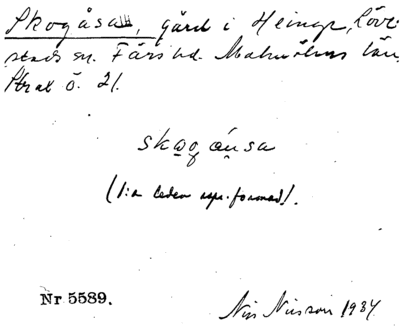 Skogåsa, gård i Heinge, Löve-
stads sn. Färs hd. Malmöhus län,
Strax ö. 21.
skọg ạ́nsa
(1:a leden rspr.-formad).
Nr 5589.
Nils Nilsson 1934